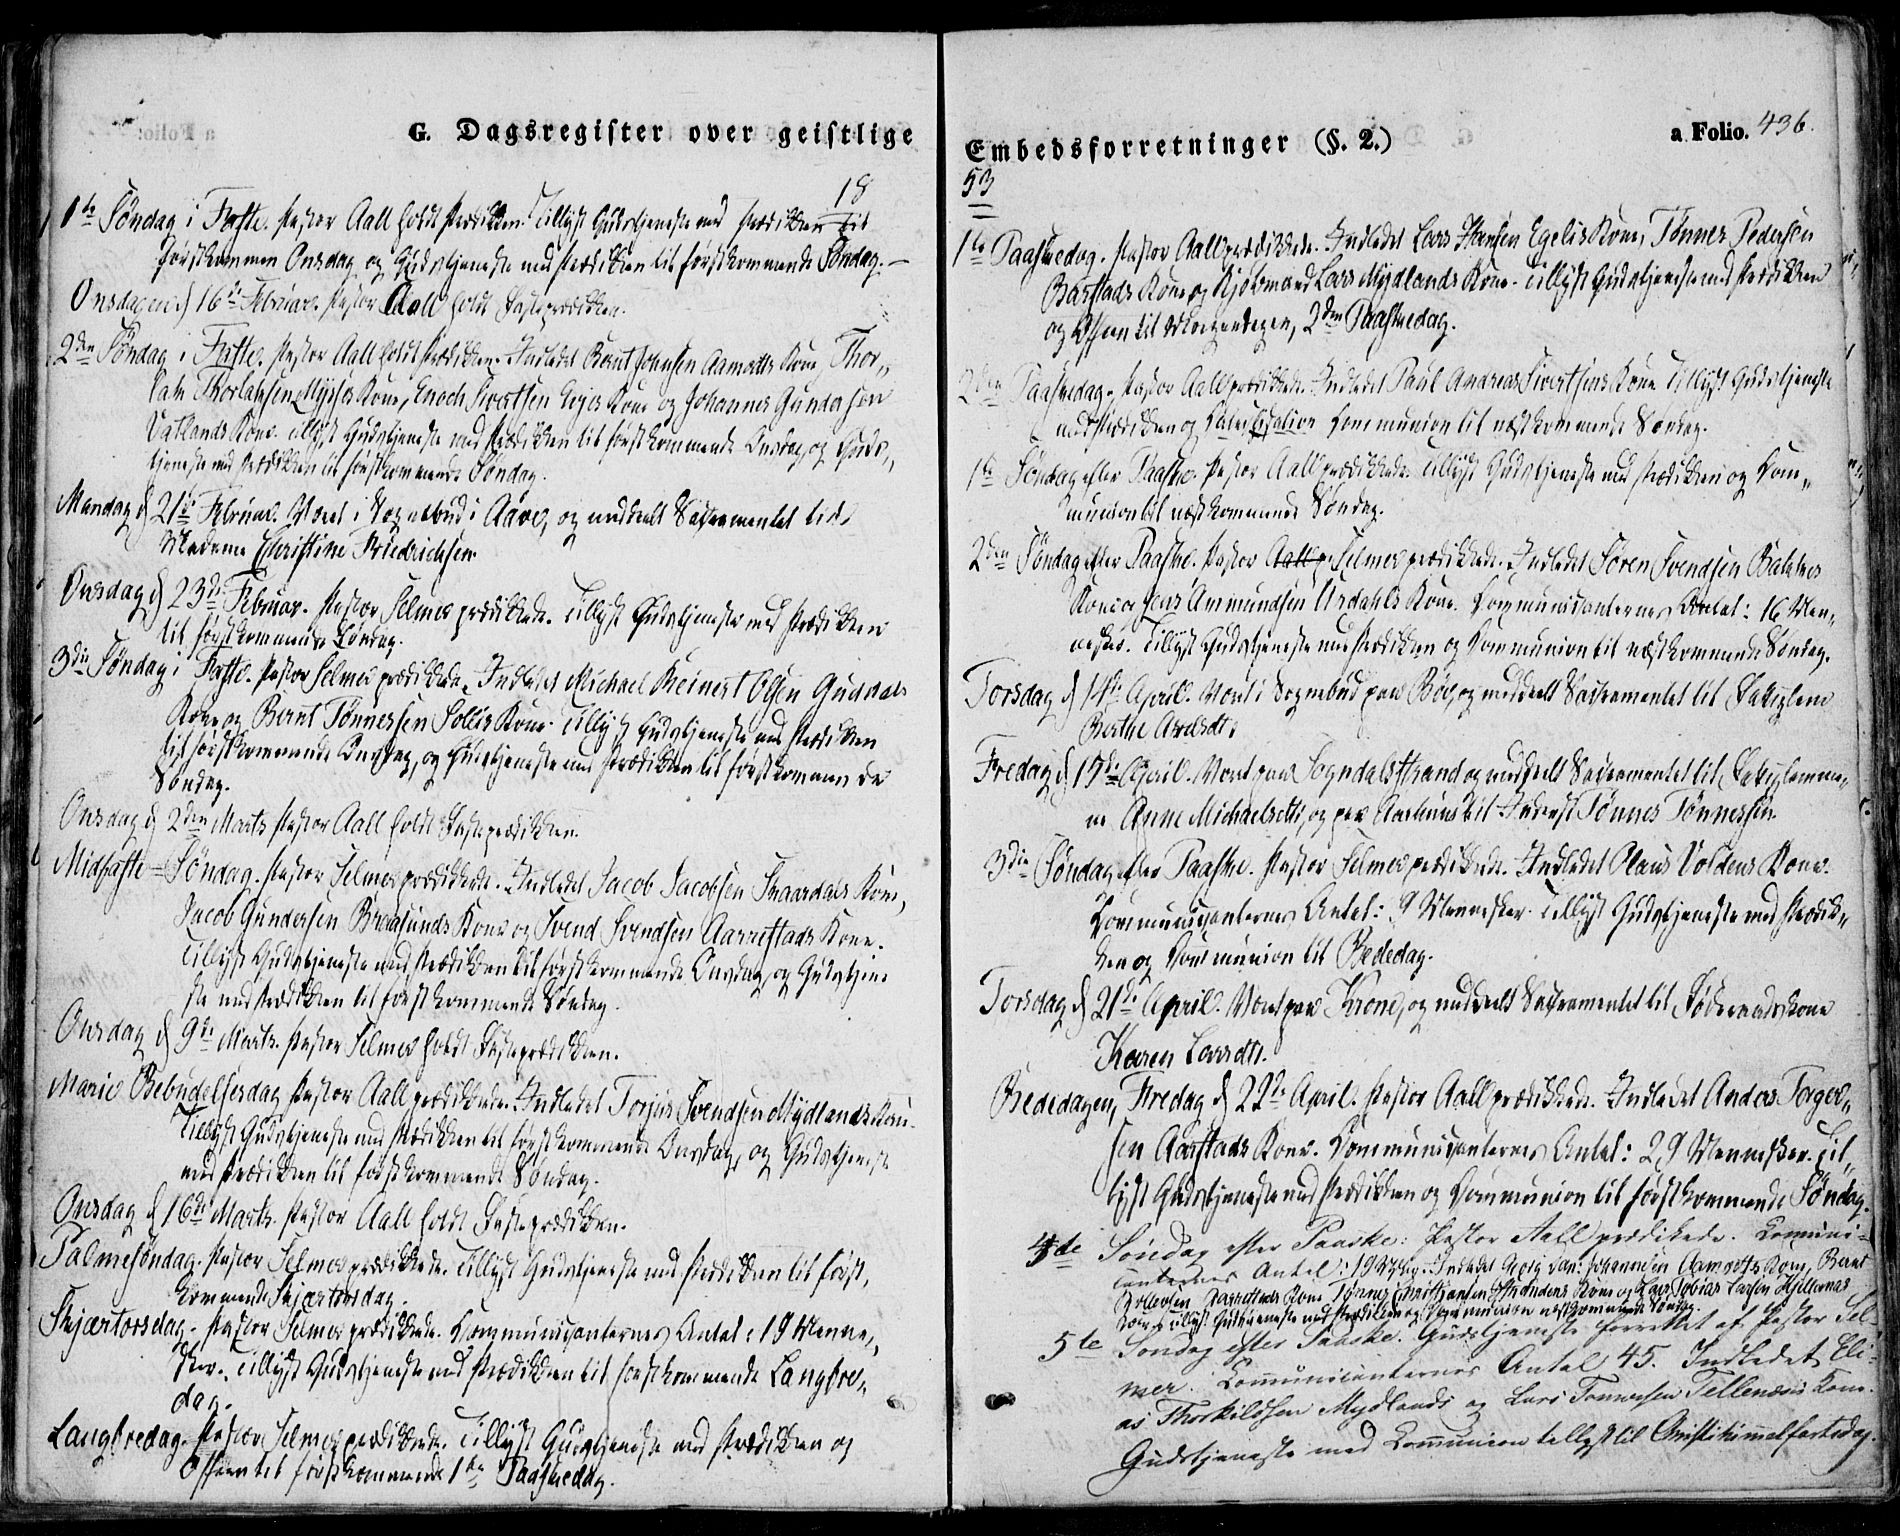 G. Dagsregister over geistlige
18
1te Søndag i Faste. Pastor Aall holdt Prædiken. Tillyst Gudstjeneste med Prædiken til
førstkommen Onsdag og Gudstjeneste med Prædiken til førstkommende Søndag. —
Onsdagen d 16de Februar. Pastor Aall holdt Fasteprædiken.
2den Søndag i Faste. Pastor Aall holdt Prædiken. Indledet Bernt Johnsen Aamodts Kone, Thor„
lak Thorlaksen Myssers Kone, Enoch Sivertsen Eejes Kone og Johannes Gundersen
Vatlands Kone. Tillyst Gudstjeneste med Prædiken til førstkommende Onsdag og Guds„
tjeneste med Prædiken til førstkommende Søndag.
Mandag d 21de Februar. Været i Sognebud i Aave, og meddeelt Sacramentet til
Madame Christine Friedrichsen.
Onsdag d 23de Februar. Pastor Selmer prædikede. Tillyst Gudstjeneste med Prædiken
til førstkommende Søndag.
3die Søndag i Faste. Pastor Selmer prædikede. Indledet Michael Reinert Olsen Gusdals
Kone og Bernt Tønnessen Sollis Kone. Tillyst Gudstjeneste med Prædiken
til førstkommende Onsdag, og Gudstjeneste med Prædiken til førstkommende
Søndag.
Onsdag d 2den Marts Pastor Aall holdt Fasteprædiken.
Midfaste-Søndag. Pastor Selmer prædikede. Indledet Jacob Jacobsen Skaardals Kone,
Jacob Gundersen Kone og Svend Svendsen Aarrestads Kone.
Tillyst Gudstjeneste med Prædiken til førstkommende Onsdag og Gudstjene
ste med Prædiken til førstkommende Søndag.
Onsdag d 9de Marts. Pastor Selmer holdt Fasteprædiken.
Mariæ Bebudelsesdag Pastor Aall prædikede. Indledet Torjus Svendsen Mydlands Kone.
Tillyst Gudstjeneste med Prædiken til førstkommende Onsdag, og Gudstjeneste
med Prædiken til førstkommende Søndag.
Onsdag d 16de Marts. Pastor Aall holdt Fasteprædiken.
Palmesøndag. Pastor Selmer prædikede. Tillyst Gudstjeneste med Prædiken til først„
kommende Skjærtorsdag.
Skjærtorsdag. Pastor Selmer prædikede. Communicanternes Antal: 19 Menne„
sker. Tillyst Gudstjeneste med Prædiken til førstkommende Langfre„
dag.
Langfredag. Pastor Selmer prædikede. Tillyst Gudstjeneste med Prædiken og
Offer til førstkommende 1te Paaskedag.
Embedsforretninger (§. 2.)
a Folio. 436.
53
1te Paaskedag. Pastor Aall prædikede. Indledet Lars Hansen Egelis Kone, Tønnes Pedersen
Barstads Kone og Kjøbmand Lars Mydlands Kone. Tillyst Gudstjeneste med Prædiken
og Offer til Morgendagen, 2den Paaskedag.
2den Paaskedag. Pastor Aall prædikede. Indledet Paul Andreas Sivertsens Kone Tillyst Gudstjeneste
med Prædiken og Communion til næstkommende Søndag.
1te Søndag efter Paaske. Pastor Aall prædikede. Tillyst Gudstjeneste med Prædiken og Com„
munion til næstkommende Søndag.
2den Søndag efter Paaske. Pastor Aall p. Selmer prædikede. Indledet Søren Svendsen
Kone og Jens Ammundsen Urdahls Kone. Communicanternes Antal: 16 Men„
nesker. Tillyst Gudstjeneste med Prædiken og Communion til næstkommende Søndag.
Torsdag d 14de April. Været i Sognebud paa Bøe, og meddeelt Sacramentet til Fattiglem
Berthe
Fredag d 15de April. Været paa Sogndalsstrand og meddeelt Sacramentet til Fattiglemme„
ne Anne Michaelsdtr, og paa til Inderst Tønnes Tønnessen.
3die Søndag efter Paaske. Pastor Selmer prædikede. Indledet Voldens Kone.
Communicanternes Antal: 9 Mennesker. Tillyst Gudstjeneste med Prædik„
ken og Communion til Bededag.
Torsdag d 21de April. Været paa Krone, og meddeelt Sacramentet til
Karen Larsdtr.
Bededagen, Fredag d 22de April. Pastor Aall prædikede. Indledet Anders Torger„
sen Aarstads Kone. Communicanternes Antal: 29 Mennesker. Til„
lyst Gudstjeneste med Prædiken og Communion til førstkommende Søndag.
4de Søndag efter Paaske: Pastor Aall prædikede. Comuni-
canternes Antal: 19 Indledet Georg Johannesen Aamodts Kone, Bernt
Kone Tønnes Christiansen Strandens Kone og Lars Tobias Larsen
Kone. Tillyst Gudstjeneste med Prædiken og Communion næstkommende Søndag.
5te Søndag efter Paaske. Gudstjeneste forrettet af Pastor Sel-
mer. Comunicanternes Antal 45. Indledet Eli-
as Thorkildsen Mydlands og Lars Tønnesen Tellenæs's Kone.
Gudstjeneste med Comunion tillyst til Christihimmelfartsdag.